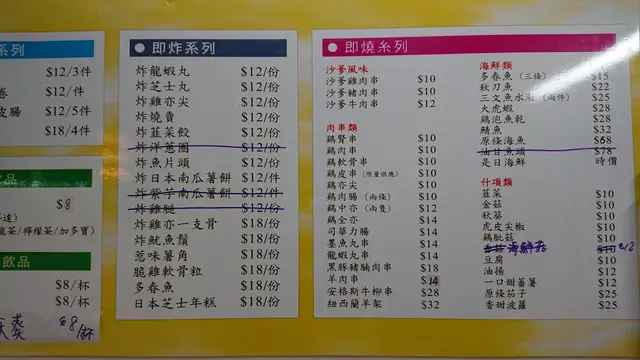 系列
$12/3件
卷 $12/件
皮腸 $12/5件
$18/4件
飲品
$8
茶/檸檬茶/加多寶)
飲品
$8/杯
$8/杯
$8/杯
即炸系列
炸龍蝦丸 $12/份
炸芝士丸 $12/份
炸雞亦尖 $12/份
炸燒賣 $12/份
炸韮菜餃 $12/份
炸洋蔥圈 $12/份
炸魚片頭 $12/份
炸日本南瓜薯餅 $12/件
炸紫芋南瓜薯餅 $12/件
炸雞腿 $12/份
炸雞亦一支骨 $18/份
炸魷魚鬚 $18/份
惹味薯角 $18/份
脆雞軟骨粒 $18/份
多春魚 $18/份
日本芝士年糕 $18/份
即燒系列
沙爹風味
沙爹雞肉串 $10
沙爹豬肉串 $10
沙爹牛肉串 $12
肉串類
鷄腎串 $10
鷄肉串 $10
鷄軟骨串 $10
鷄皮串 (限量供應) $10
鷄亦尖 $10
鷄肉腸 (兩條) $10
鷄中亦 (兩隻) $12
鷄全亦 $14
司華力腸 $14
墨魚丸串 $14
龍蝦丸串 $14
黑豚豬腩肉串 $18
羊肉串 $14
安格斯牛柳串 $28
紐西蘭羊架 $32
海鮮類
多春魚 (三條) $15
秋刀魚 $22
三文魚水腩 (兩件) $25
大虎蝦 $28
鷄泡魚乾 $28
鯖魚 $32
原條海魚 $68
油甘魚頭 $78
是日海鮮 時價
什項類
韮菜 $10
金菇 $10
秋葵 $10
虎皮尖椒 $10
鷄髀菇 $10
海鮮菇 $10 $12
豆腐 $10
油揚 $12
一口甜蕃薯 $12
原條茄子 $25
香甜波蘿 $25